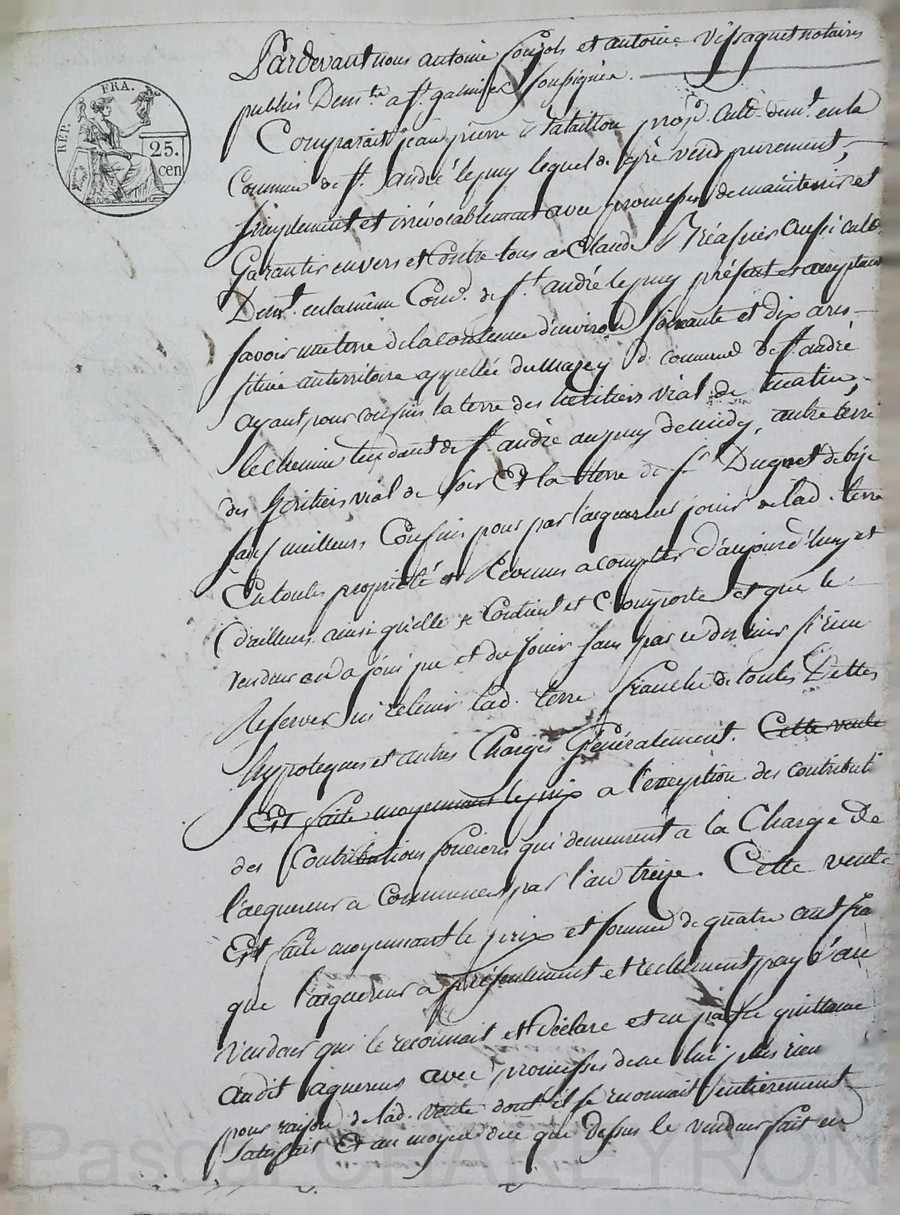 REP. FRA.
25.
cen
Pardevant nous antoine et antoine Vissaguet notaires
publics Demts a St galmier Soussignés.
Comparait jean pierre tataillon propre cultr demt en la
Commune de St andré le puy lequel de gré vend purement,
simplement et irrévocablement avec promesses de maintenir et
Garantir envers et Contre tous a Claude Réasnier aussi cultr
Demt en la même Comne de St andré le puy présent et acceptant
savoir une terre de la contenue d'environ soixante et dix ares
située au territoire appellée du Mazey de commune De St andré
ayant pour confins la terre des heritiers vial de matin
le chemin tendant de St andré au puy de midy, autre terre
des heritiers vial de soir Et la terre de Sr Duguet de bize
sauf meilleurs Confins pour par l'acquereur jouir de lad. terre
En toute propriété et Revenus a compter d'aujourd'huy et
d'ailleurs ainsi qu'elle se Contient et Comporte et que le
vendeur en a joui pu et du jouir sans par ce dernier s'rien
Reserver ni retenir lad. terre franche de toutes Dettes
hypoteques et autres Charges Généralement. Cette vente
Est faite moyennant le prix a l'exception des contributi
des Contributions foncieres qui demeurent a la Charge De
l'acquereur a Commencer par l'an treize. Cette vente
Est faite moyennant le prix et somme de quatre cent fra
que l'acquereur a présentement et réellement payé au
vendeur qui le reconnait et déclare et en passe quittance
audit aquereur avec promesses de ne lui plus rien
pour raison de lad. vente dont il se reconnait entièrement
satisfait Et au moyen de ce que Dessus le vendeur fait en
Pascal CHAREYRON